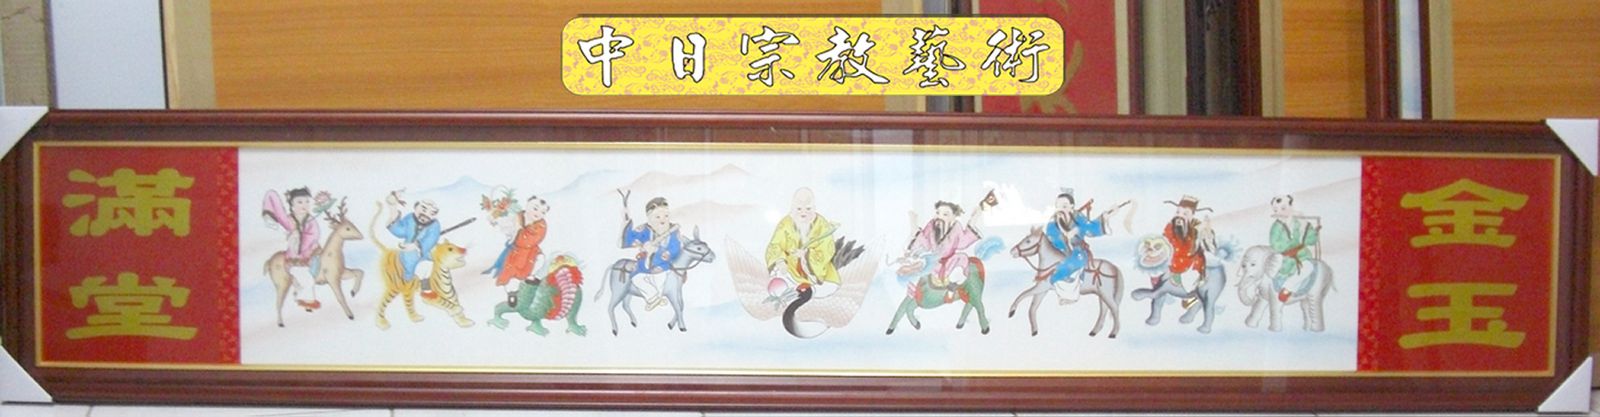 中日宗教藝術
金玉
滿堂